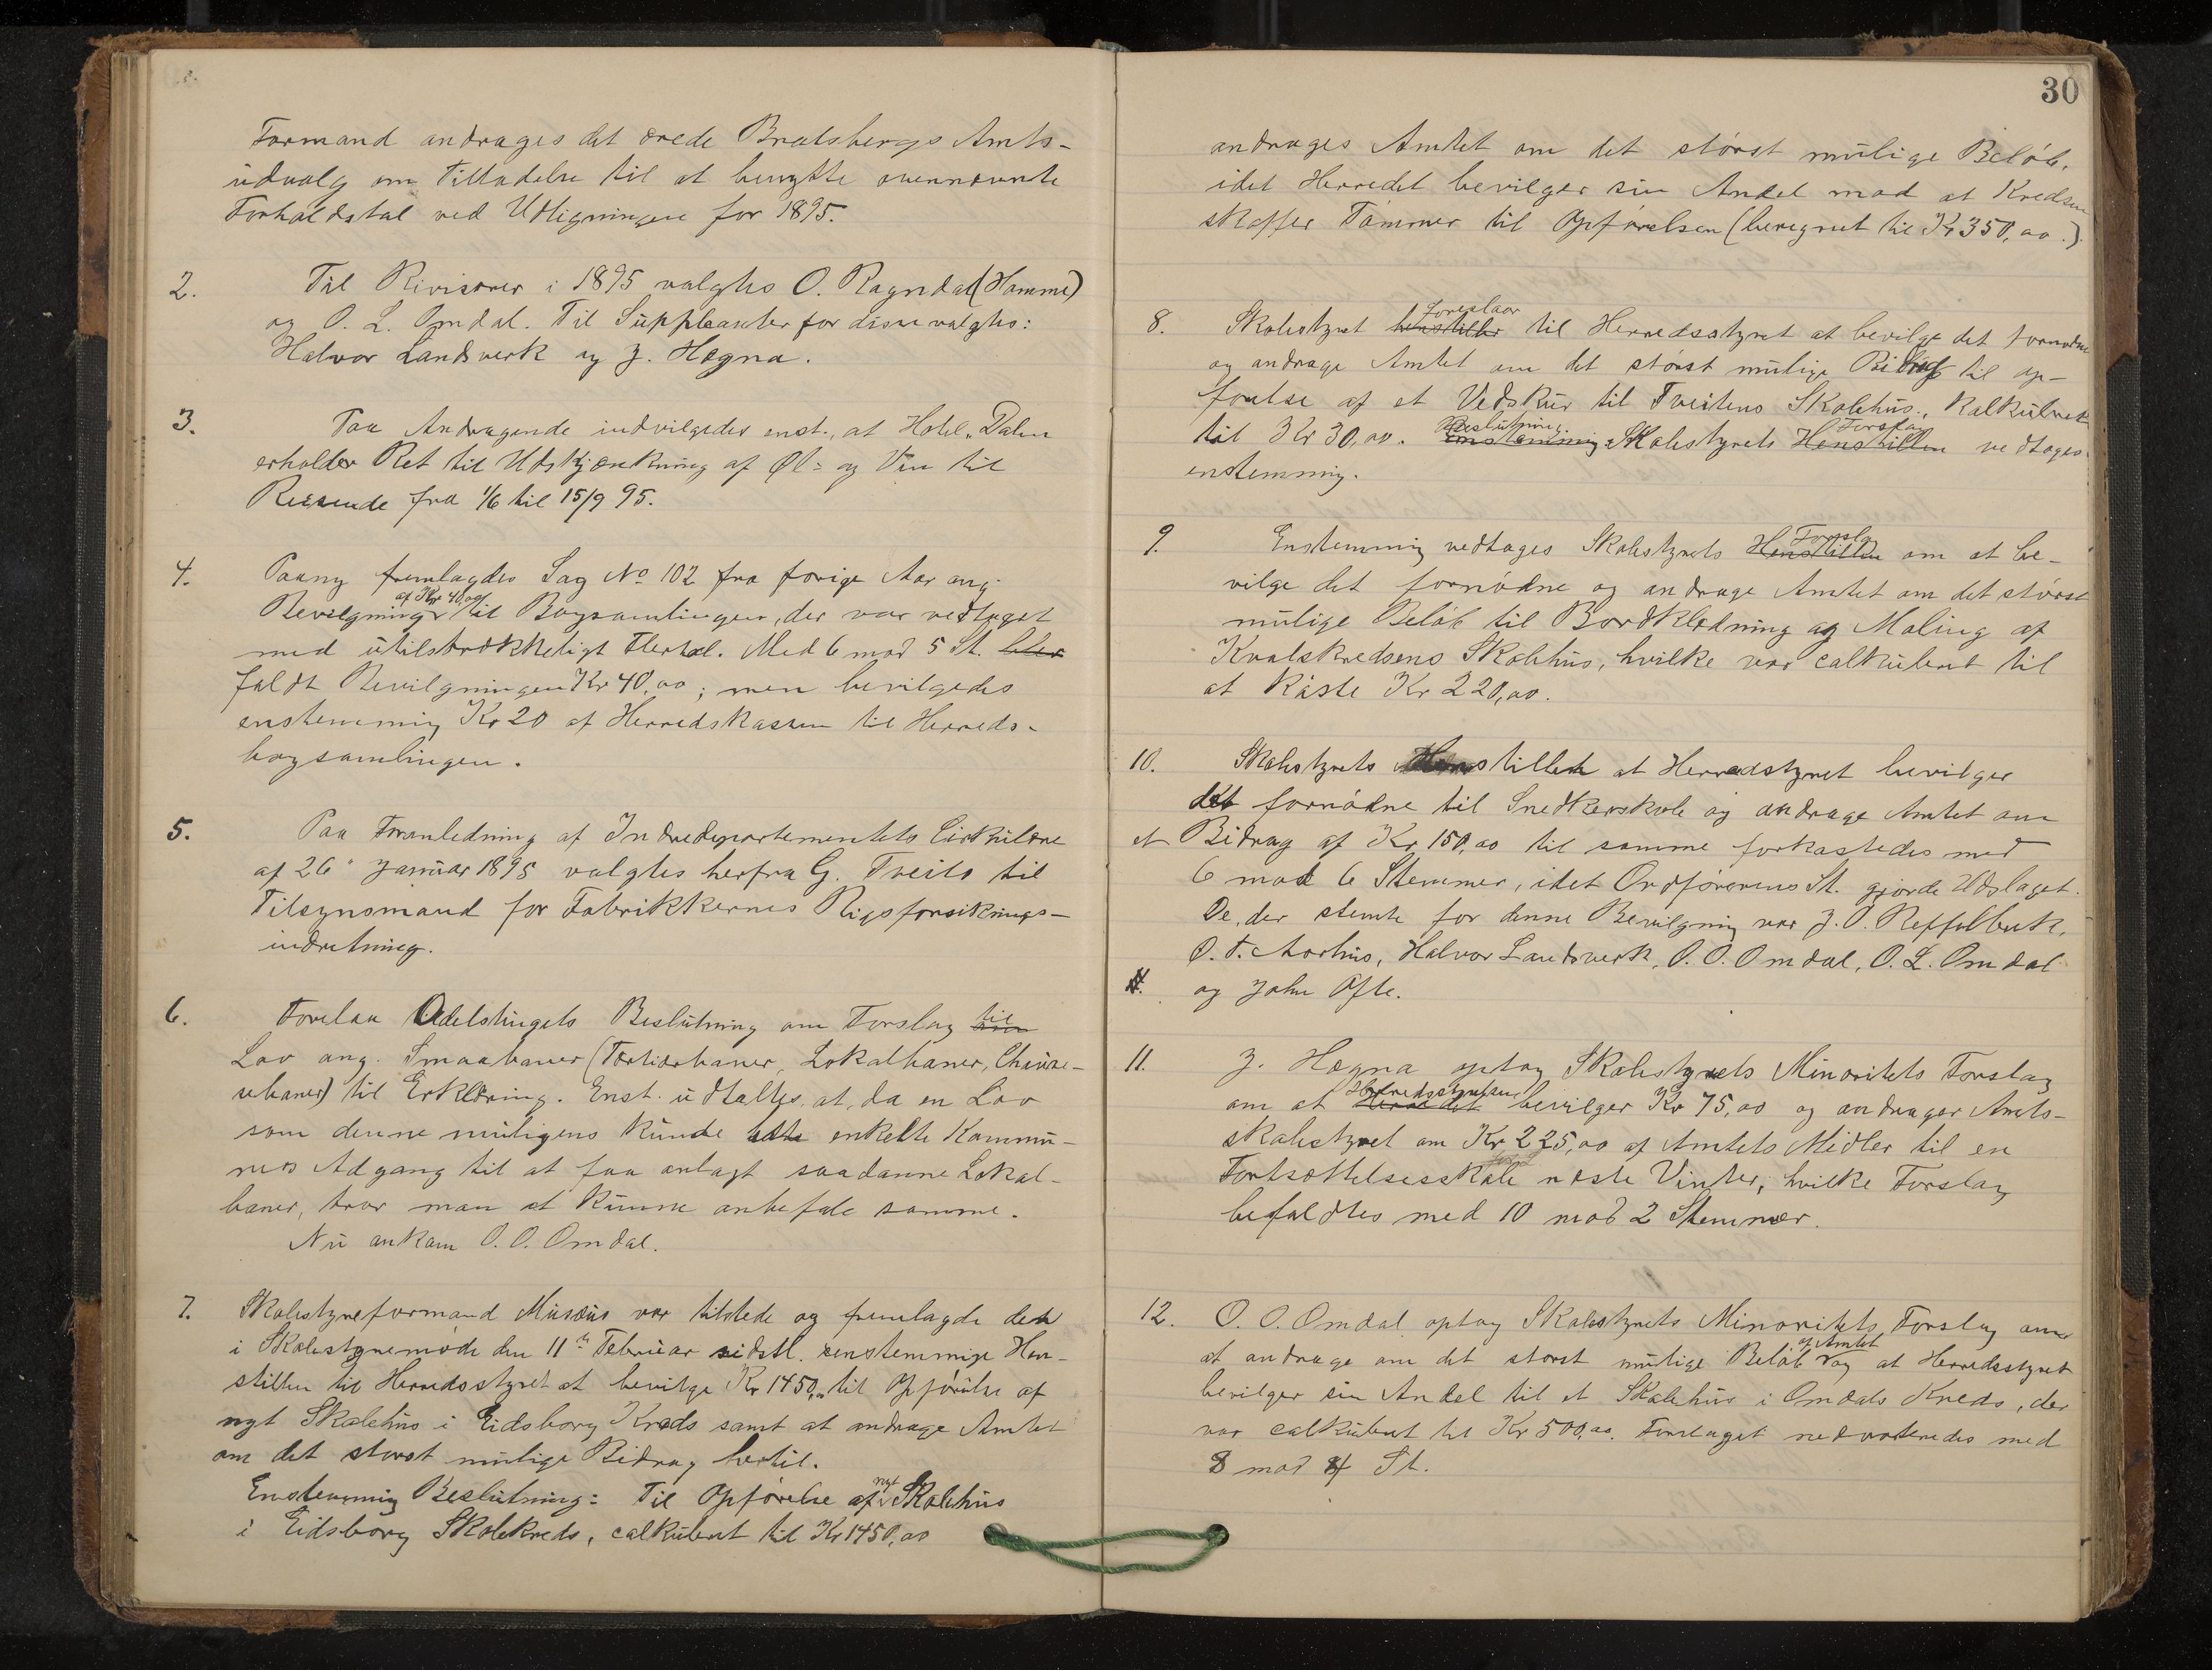 Formand andrages det ærede Bratsbergs Amts-
udvalg om Tilladelse til at benytte ovennævnte
Forholdstal ved Udligningen for 1895.
2. Til Rivisorer i 1895 valgtes O. Ragndal (Hamme)
og O. L. Omdal. Til Suppleanter for disse valgtes:
Halvor Landsverk og J. Høgna.
3. Paa Andragende indvilgedes enst., at Hotel „Dalen
erholder Ret til Udskjænkning af Øl- og Vin til
Reisende fra 1/6 til 15/9 95.
4. Paany fremlagdes Sag No 102 fra forige Aar ang.
af Kr 40,00
Bevilgning til Bogsamlingen, der var vedtaget
med utilstrækkeligt Flertal. Med 6 mod 5 St.
faldt Bevilgningen Kr 40,00; men bevilgedes
enstemmig Kr 20 af Herredskassen til Herreds-
bogsamlingen.
5. Paa Foranledning af Indredepartementets Cirkulære
af 26 Januar 1895 valgtes herfra G. Tveito til
Tilsynsmand for Fabrikkernes Rigsforsikrings-
indretning.
6. Forelaa Odelstingets Beslutning om Forslag til
Lov ang. Smaabaner (Tertiærbaner, Lokalbaner, Chausse-
sebaner) til Erklæring. Enst. udtaltes, at, da en Lov
som denne muligens kunde lette enkelte Kommu-
ners Adgang til at faa anlagt saadanne Lokal-
baner, tror man at kunne anbefale samme.
Nu ankom O. O. Omdal.
7. Skolestyreformand Musæus var tilstede og fremlagde den
i Skolestyremøde den 11te Februar sidstl. enstemmige Hen-
stillen til Herredsstyret at bevilge Kr 1450,,, til Opførelse af
nyt Skolehus i Eidsborg Kreds samt at andrage Amtet
om det størst mulige Bidrag hertil.
nyt
Enstemmig Beslutning: Til Opførelse af Skolehus
i Eidsborg Skolekreds, calkuleret til Kr 1450,00
30
andrages Amtet om det størst mulige Beløb,
idet Herredet bevilger sin Andel mod at Kredsen
skaffer Tømmer til Opførelsen (beregnet til Kr 350,00.)
foreslaar
8. Skolestyret henstiller til Herredsstyret at bevilge det fornødne
og andrage Amtet om det størst mulige Bidrag til op-
førelse af et Vedskur til Tveitens Skolehus, kalkuleret
Beslutning. Forslag
til Kr 30,00. Enstemmig: Skolestyrets Henstillen vedtages
enstemmig.
Forslag
9. Enstemmig vedtages Skolestyrets Henstillen om at be-
vilge det fornødne og andrage Amtet om det størst
mulige Beløb til Bordklædning og Maling af
Kvalskredsens Skolehus, hvilke var calkuleret til
at koste Kr 220,00.
10. Skolestyrets Henstillen at Herredstyret bevilger
det fornødne til Snedkerskole og andrage Amtet om
et Bidrag af Kr 150,00 til samme forkastedes med
6 mod 6 Stemmer, idet Ordførerens St. gjorde Udslaget.
De, der stemte for denne Bevilgning var J. O.
O. T. Aarhus, Halvor Landsverk, O. O. Omdal, O. L. Omdal
og John Ofte.
11. J. Høgna optog Skolestyrets Minoritets Forslag
Herredsstyret
om at Herredet bevilger Kr 75,00 og andrager Amts-
skolestyret om Kr 225,00 af Amtets Midler til en
Fortsættelsesskole næste Vinter, hvilke Forslag
befaldtes med 10 mod 2 Stemmer.
12. O. O. Omdal optog Skolestyrets Minoritets Forslag om
af Amtet
at andrage om det størst mulige Beløb og at Herredsstyret
bevilger sin Andel til et Skolehus i Omdals Kreds, der
var calkuleret til Kr 500,00. Forslaget nedvoteredes med
8 mod 4 St.